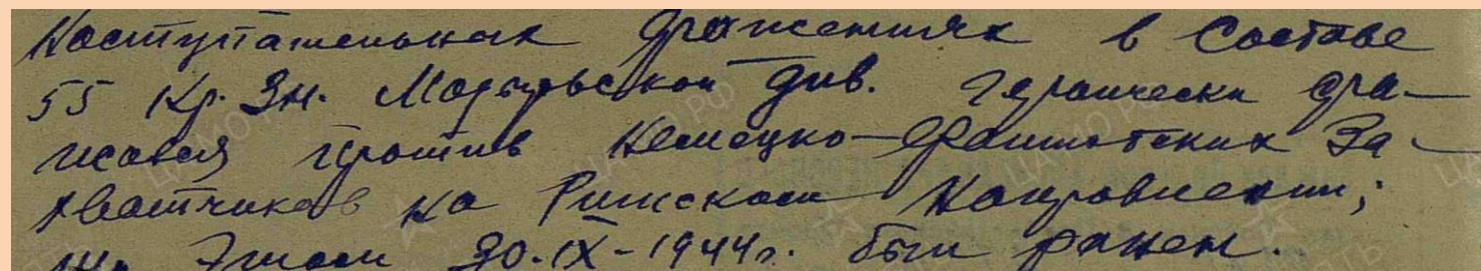 Наступательных сражениях в составе
55 Кр. Зн. Мозырьской див. героически сра-
жался против Немецко-Фашистских За-
хватчиков на Рижском Направлении;
При Этом 30.IX-1944г. был ранен.